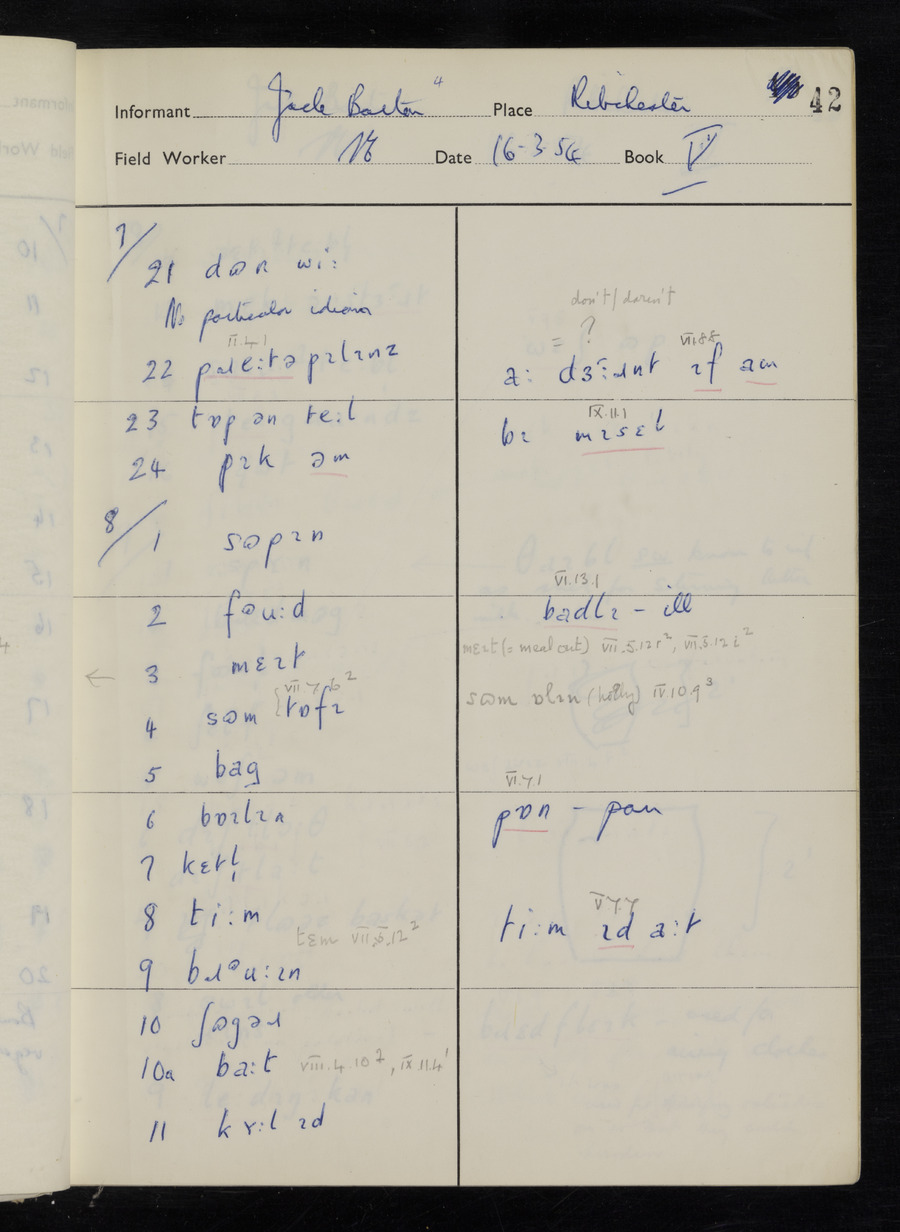 42
Informant Jack Barton Place Ribchester
Field Worker Date 16-3-54 Book V
7/
21 dɷn wi:
No particular idiom
II.4.1
22 pɹɪe:tə pɪlɪnz
23 tɒp ən te:l
24 pɪk əm
8/
1 sɷpɪn
2 fəu:d
3 mɛɪt
VII.7.6²
4 sɷm tɒfɪ
5 bag
6 bɒɪlɪn
7 kɛtl̩
8 ti:m
tɛm VII.5.12²
9 bɹəu:ɪn
10 ʃɷgəɹ
10a ba:t VIII.4.10², IX.11.4¹
11 kɤ:l ɪd
don't/daren't
= ?
VI.8.8
a: dɜ:ɹnt ɪf əm
IX.11.1
bɪ mɪsɛl
VI.13.1
badlɪ - ill
mɛɪt (= meal out) VII.5.12², VII.5.12²
sɷm ɒlɪn (holly) IV.10.9³
VI.7.1
pɒn - pan
V.7.7
ti:m ɪd a:t